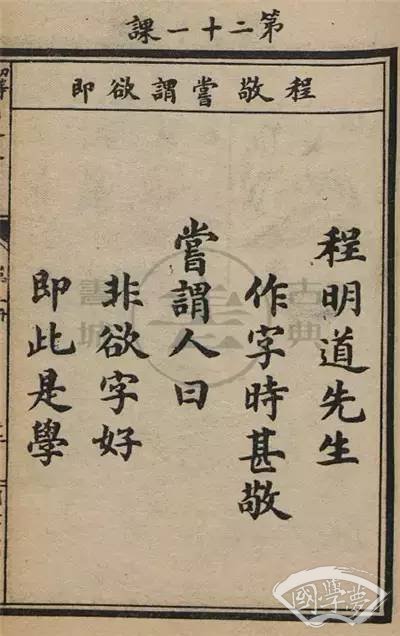 第二十一課
程敬嘗謂欲即
程明道先生
作字時甚敬
嘗謂人曰
非欲字好
即此是學
古典書城
國學夢